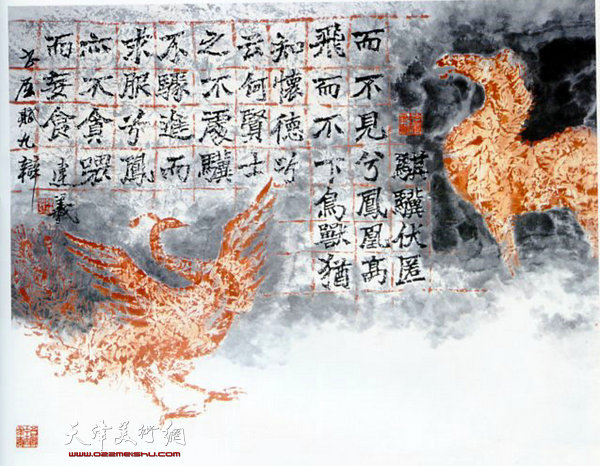 騏驥伏匿
而不見兮鳳凰高
飛而不下鳥獸猶
知懷德兮
云何賢士
之不處驥
不驟進而
求服兮鳳
亦不貪餵
而妄食
屈賦九辯
建義
天津美術網
www.022meishu.com